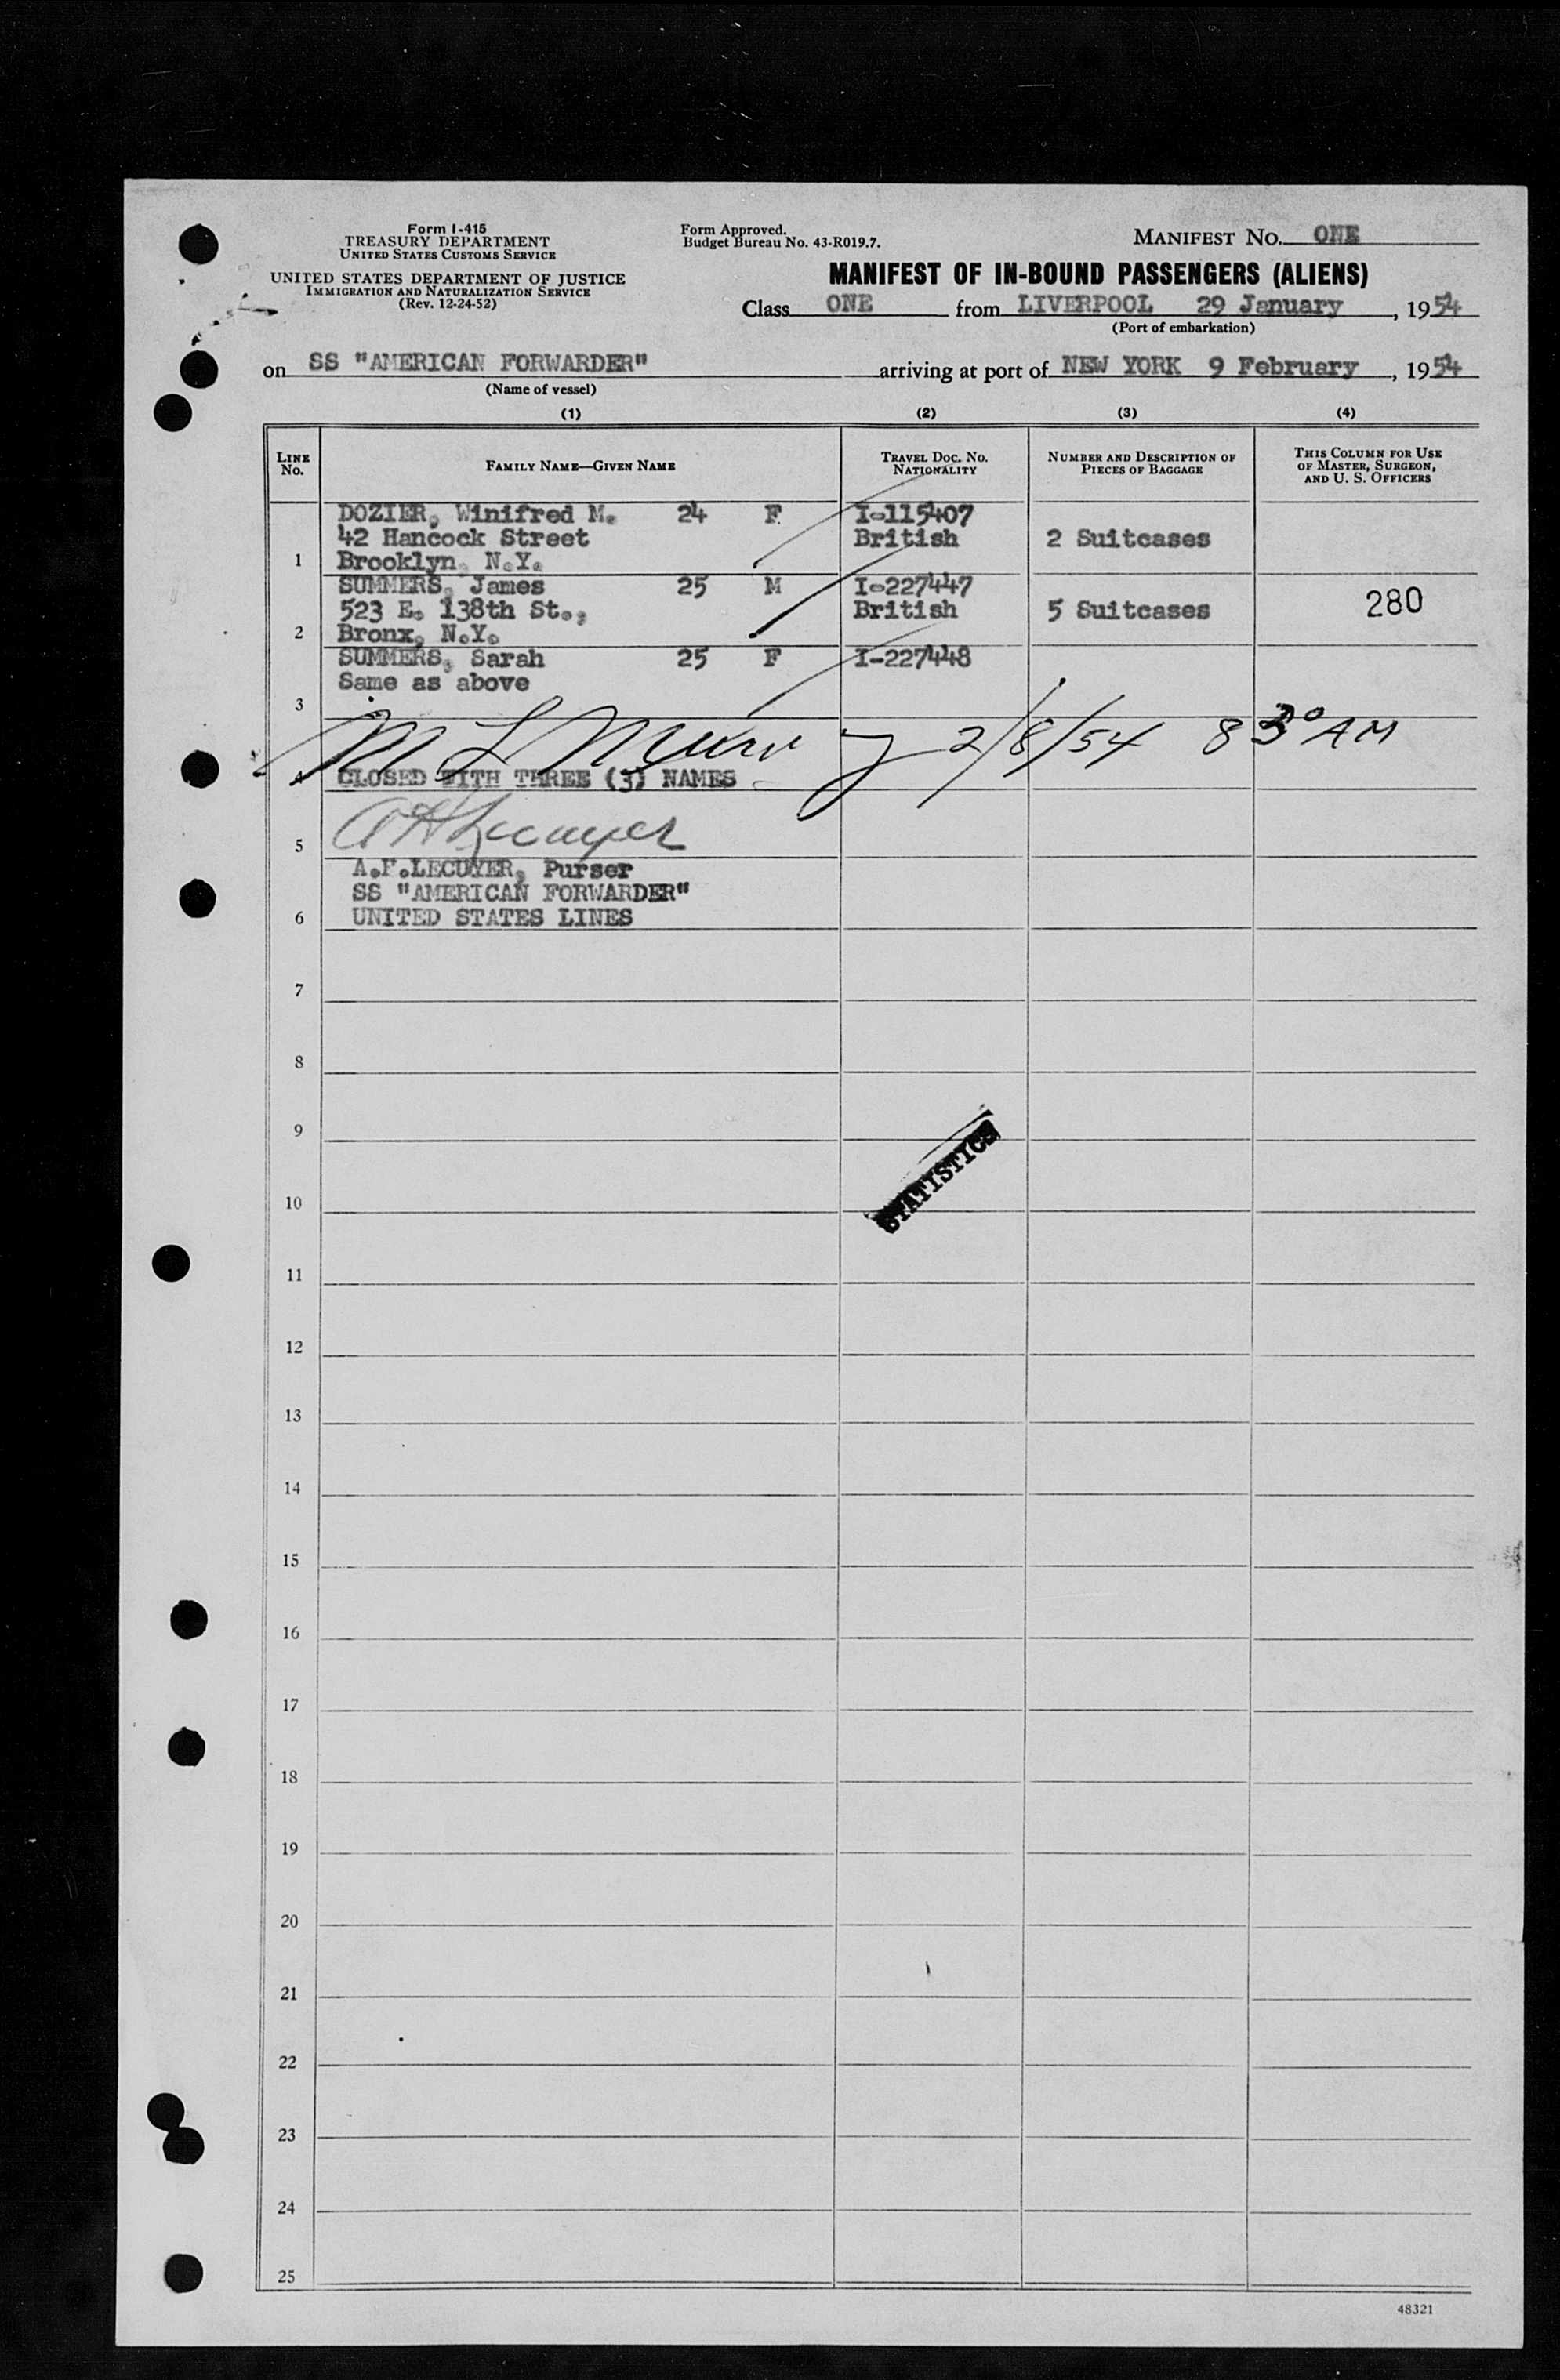 Form I-415
TREASURY DEPARTMENT
UNITED STATES CUSTOMS SERVICE
UNITED STATES DEPARTMENT OF JUSTICE
IMMIGRATION AND NATURALIZATION SERVICE
(Rev. 12-24-52)
Form Approved.
Budget Bureau No. 43-R019.7.
MANIFEST NO. ONE
MANIFEST OF IN-BOUND PASSENGERS (ALIENS)
Class ONE from LIVERPOOL 29 January, 1954
(Port of embarkation)
on SS "AMERICAN FORWARDER" arriving at port of NEW YORK 9 February, 1954
(Name of vessel)
(1) (2) (3) (4)
LINE No.
FAMILY NAME—GIVEN NAME
TRAVEL DOC. NO. NATIONALITY
NUMBER AND DESCRIPTION OF PIECES OF BAGGAGE
THIS COLUMN FOR USE OF MASTER, SURGEON, AND U. S. OFFICERS
DOZIER, Winifred M. 24 F I-115407
42 Hancock Street British 2 Suitcases
1 Brooklyn, N.Y.
SUMMERS, James 25 M I-227447
523 E. 138th St., British 5 Suitcases 280
2 Bronx, N.Y.
SUMMERS, Sarah 25 F I-227448
Same as above
3
M L Murray 2/8/54 8 30 AM
4 CLOSED WITH THREE (3) NAMES
A F Lecuyer
5
A.F.LECUYER, Purser
SS "AMERICAN FORWARDER"
6 UNITED STATES LINES
7
8
9
STATISTICS
10
11
12
13
14
15
16
17
18
19
20
21
22
23
24
25
48321